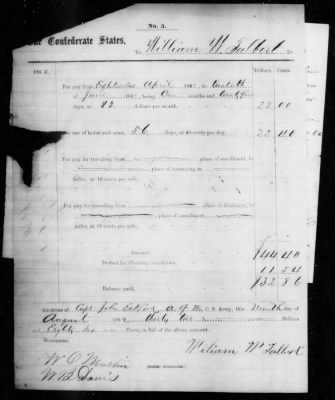 No. 5.
The Confederate States,
To William W. Talbert
186
Dollars Cents
For pay from Eighteenth April 186 , to twentieth
June 186 , being One months and
days, at 12 dollars per month,
22 00
use of horse and arms, 56 days, at 40 cents per day,
22 40
For pay for traveling from place of enrollment, to
place of mustering in
miles, at 10 cents per mile,
For pay for traveling from place of discharge, to
place of enrollment,
miles, at 10 cents per mile,
Amount,
$44 40
Deduct for Clothing
11 54
Balance paid,
$32 86
RECEIVED of Capt John A. Q. M. C. S. Army, this Ninth day of
August 186 , thirty two Dollars
and Eighty six Cents, in full of the above account.
WITNESSES:
William W. Talbert
W. B. Davis